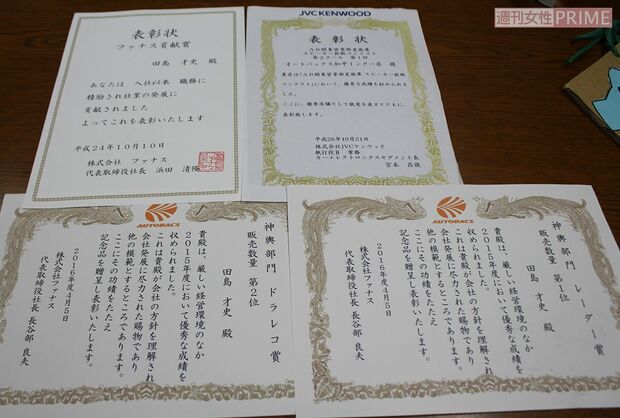 週刊女性PRIME
表彰状
ファナス貢献賞
田島 才史 殿
あなたは 入社以来 職務に
精励され社業の発展に
貢献されました
よってこれを表彰いたします
平成24年10月10日
株式会社 ファナス
代表取締役社長 浜田 清隆
JVCKENWOOD
表彰状
AB関東営業部夏施策
スピーカー拡販コンテスト
第2クール 第1位
オートバックス加平インター店 様
貴店は「AB関東営業部夏施策 スピーカー拡販
コンテスト」において、優秀な成績を収められま
した。
ここに、優秀店舗として敬意を表すとともに、
表彰致します。
平成26年10月21日
株式会社JVCケンウッド
執行役員 常務
カーエレクトロニクスセグメント長
宮本 昌俊
AUTOBACS
神輿部門 ドラレコ賞
販売数量 第2位
田島 才史 殿
貴殿は、厳しい経営環境のなか
2015年度において優秀な成績を
収められました。
これは貴殿が会社の方針を理解され
会社発展に尽力された賜物であり
他の模範とするところであります。
ここにその功績をたたえ
記念品を贈呈し表彰いたします。
2016年度4月5日
株式会社ファナス
代表取締役社長 長谷部 良夫
AUTOBACS
神輿部門 レーダー賞
販売数量 第1位
田島 才史 殿
貴殿は、厳しい経営環境のなか
2015年度において優秀な成績を
収められました。
これは貴殿が会社の方針を理解され
会社発展に尽力された賜物であり
他の模範とするところであります。
ここにその功績をたたえ
記念品を贈呈し表彰いたします。
2016年度4月5日
株式会社ファナス
代表取締役社長 長谷部 良夫